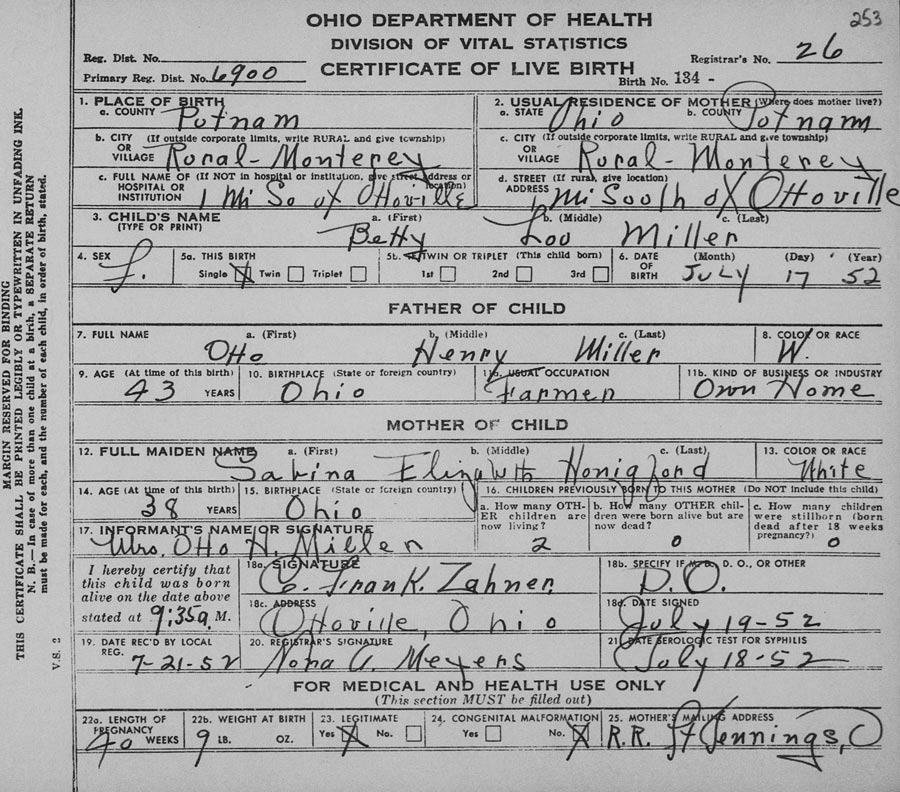 253
OHIO DEPARTMENT OF HEALTH
DIVISION OF VITAL STATISTICS
CERTIFICATE OF LIVE BIRTH
Reg. Dist. No.
Primary Reg. Dist. No. 6900
Registrar's No. 26
Birth No. 134 -
MARGIN RESERVED FOR BINDING
THIS CERTIFICATE SHALL BE PRINTED LEGIBLY OR TYPEWRITTEN IN UNFADING INK.
N. B.—In case of more than one child at a birth, a SEPARATE RETURN
must be made for each, and the number of each child, in order of birth, stated.
V.S. 2
1. PLACE OF BIRTH
a. COUNTY Putnam
b. CITY (If outside corporate limits, write RURAL and give township)
OR
VILLAGE Rural-Monterey
c. FULL NAME OF (If NOT in hospital or institution, give street address or location)
HOSPITAL OR
INSTITUTION 1 Mi So of Ottoville
2. USUAL RESIDENCE OF MOTHER (Where does mother live?)
a. STATE Ohio b. COUNTY Putnam
c. CITY (If outside corporate limits, write RURAL and give township)
OR
VILLAGE Rural- Monterey
d. STREET (If rural, give location)
ADDRESS 1 Mi South of Ottoville
3. CHILD'S NAME a. (First) b. (Middle) c. (Last)
(TYPE OR PRINT) Betty Lou Miller
4. SEX
f.
5a. THIS BIRTH
Single X Twin Triplet
5b. IF TWIN OR TRIPLET (This child born)
1st 2nd 3rd
6. DATE OF BIRTH (Month) (Day) (Year)
July 17 52
FATHER OF CHILD
7. FULL NAME a. (First) b. (Middle) c. (Last)
Otto Henry Miller
8. COLOR OR RACE
W.
9. AGE (At time of this birth)
43 YEARS
10. BIRTHPLACE (State or foreign country)
Ohio
11a. USUAL OCCUPATION
Farmer
11b. KIND OF BUSINESS OR INDUSTRY
Own Home
MOTHER OF CHILD
12. FULL MAIDEN NAME a. (First) b. (Middle) c. (Last)
Sabina Elizabeth Honigford
13. COLOR OR RACE
White
14. AGE (At time of this birth)
38 YEARS
15. BIRTHPLACE (State or foreign country)
Ohio
16. CHILDREN PREVIOUSLY BORN TO THIS MOTHER (Do NOT include this child)
a. How many OTHER children are now living?
2
b. How many OTHER children were born alive but are now dead?
0
c. How many children were stillborn (born dead after 18 weeks pregnancy?)
0
17. INFORMANT'S NAME OR SIGNATURE
Mrs. Otto H. Miller
I hereby certify that
this child was born
alive on the date above
stated at 9:35a. M.
18a. SIGNATURE
C. Frank. Zahner.
18b. SPECIFY IF M. D., D. O., OR OTHER
D.O.
18c. ADDRESS
Ottoville, Ohio
18d. DATE SIGNED
July 19-52
19. DATE REC'D BY LOCAL
REG.
7-21-52
20. REGISTRAR'S SIGNATURE
Nora A. Meyers
21. DATE SEROLOGIC TEST FOR SYPHILIS
July 18-52
FOR MEDICAL AND HEALTH USE ONLY
(This section MUST be filled out)
22a. LENGTH OF
PREGNANCY
40 WEEKS
22b. WEIGHT AT BIRTH
9 LB. OZ.
23. LEGITIMATE
Yes X No.
24. CONGENITAL MALFORMATION
Yes No. X
25. MOTHER'S MAILING ADDRESS
R.R. Ft Jennings, O